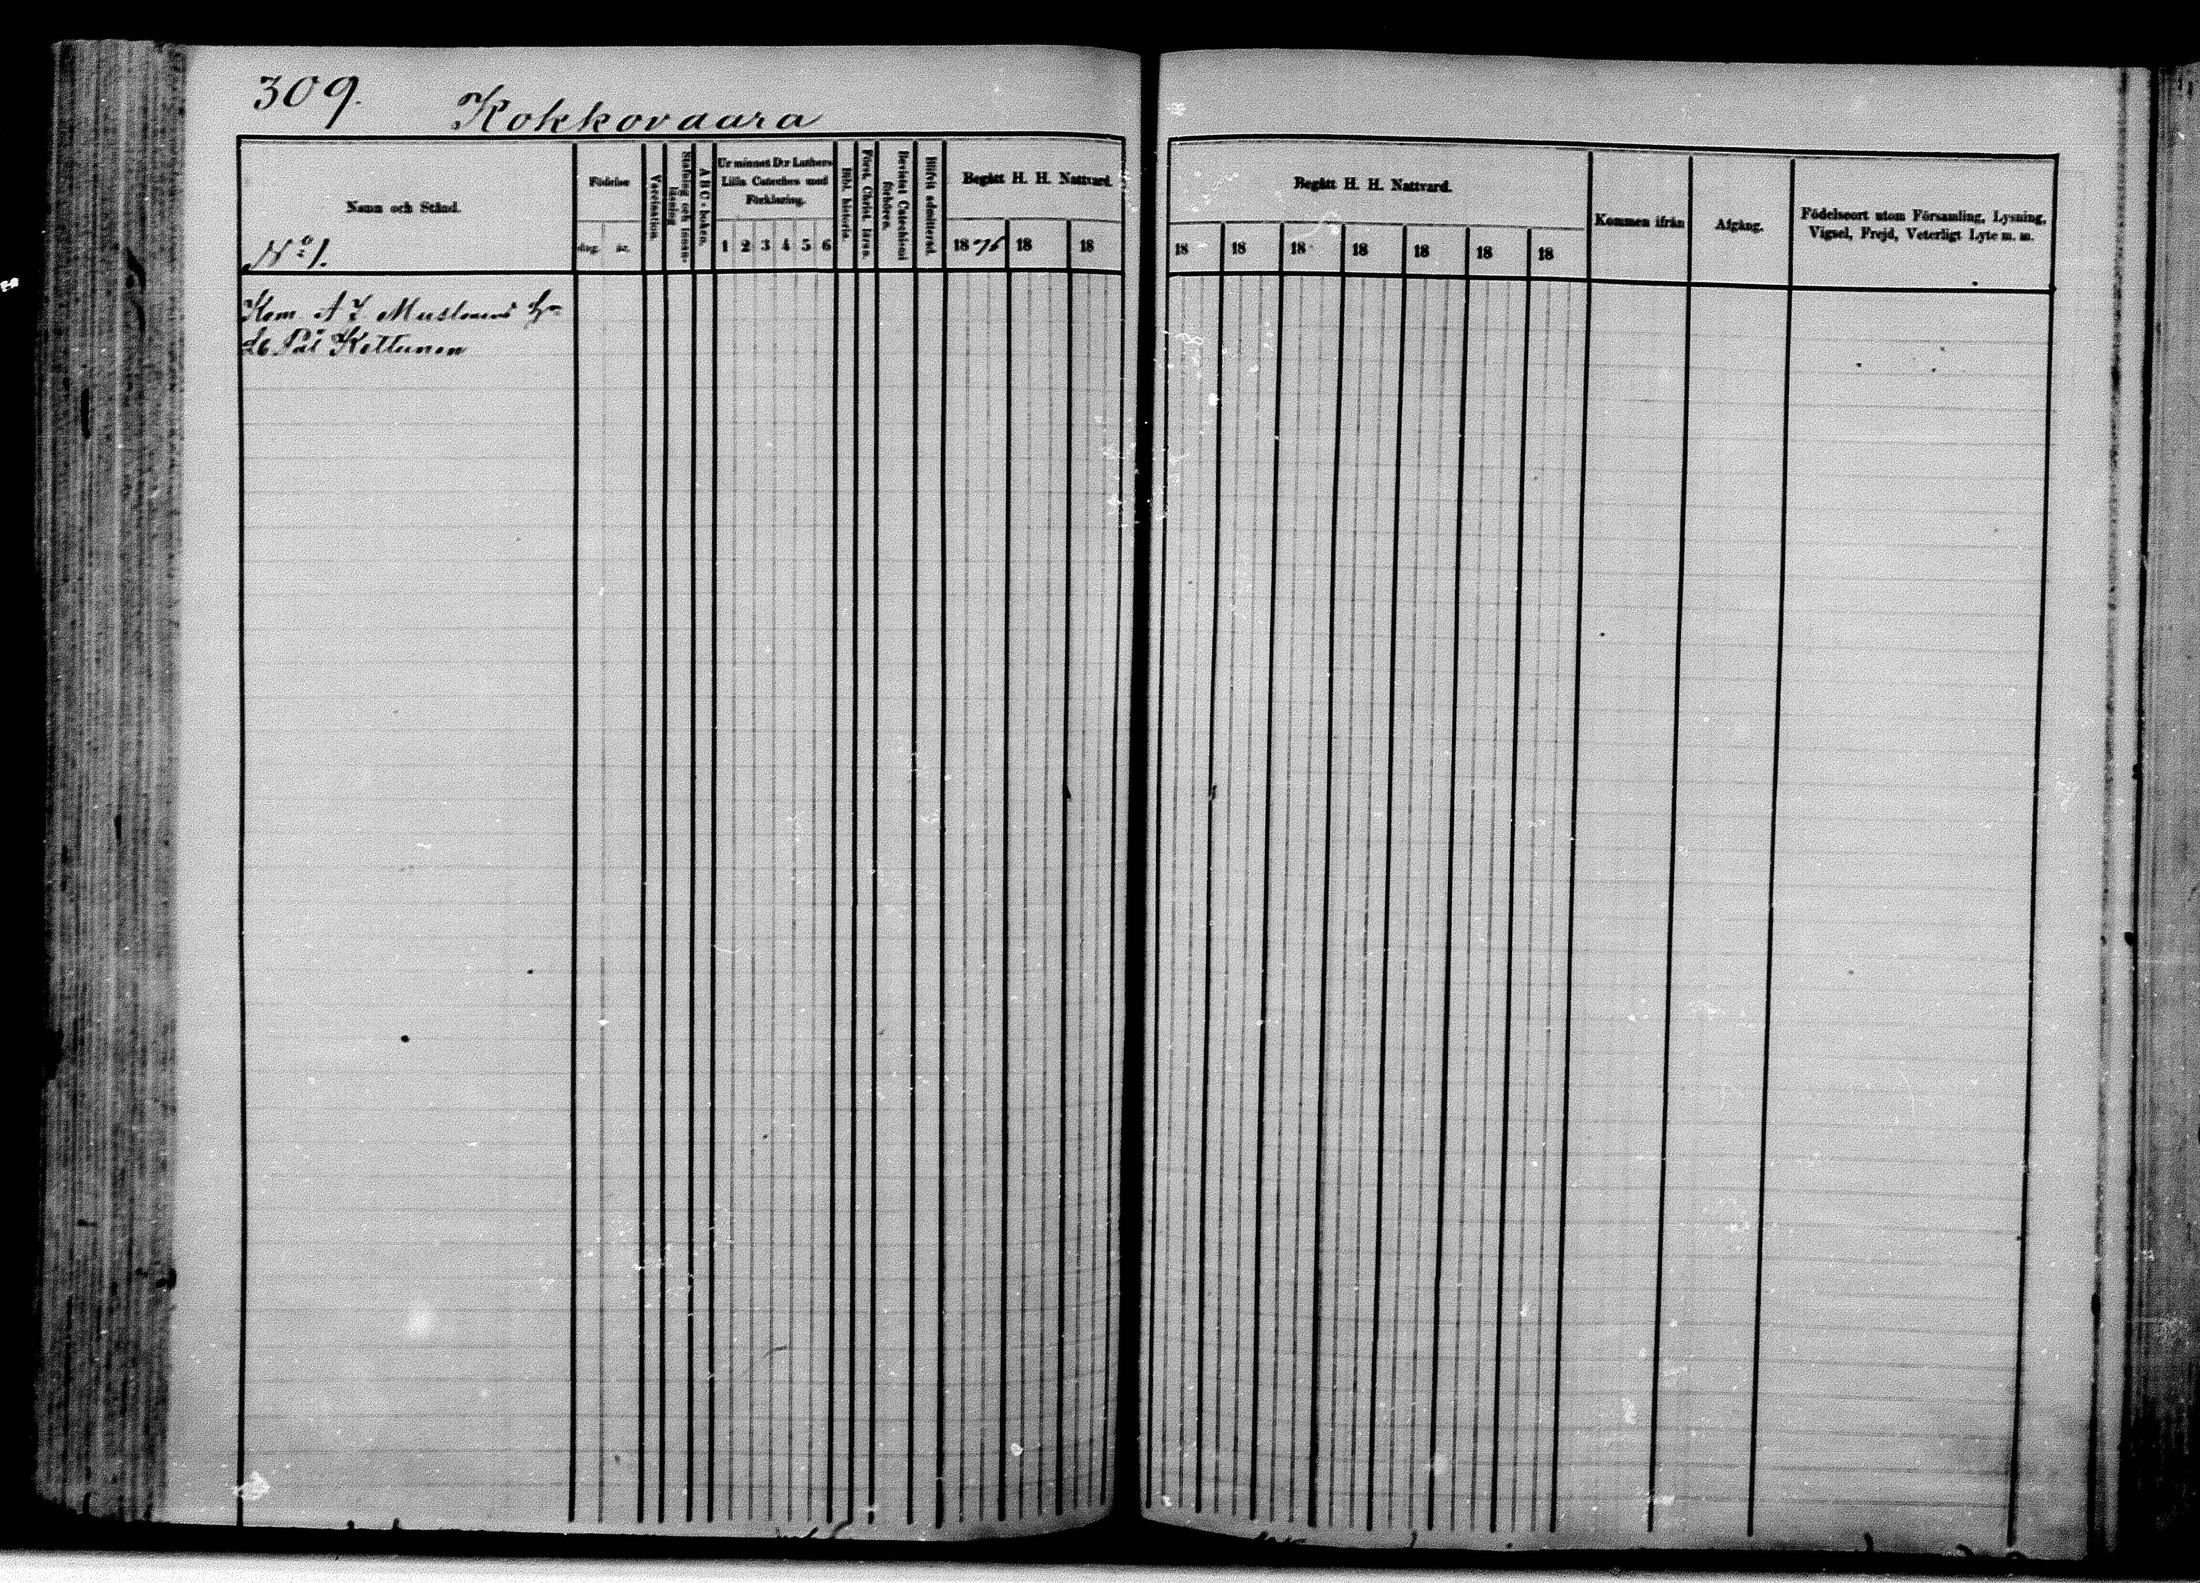 309.
Kokkovaara
Namn och Stånd.
No 1.
Födelse
dag. år.
Vaccination.
Stafning och innan-
läsning
A B C - boken.
Ur minnet D:r Luthers
Lilla Cateches med
Förklaring.
1 2 3 4 5 6
Bibl. historie.
Först. Christ. läran.
Bevistat Catechismi
förhören.
Blifvit admitterad.
Begått H. H. Nattvard.
1876 18 18
Begått H. H. Nattvard.
18 18 18 18 18 18 18
Kommen ifrån
Afgång.
Födelseort utom Församling, Lysning,
Vigsel, Frejd, Veterligt Lyte m. m.
Kom. A J
Kettunen